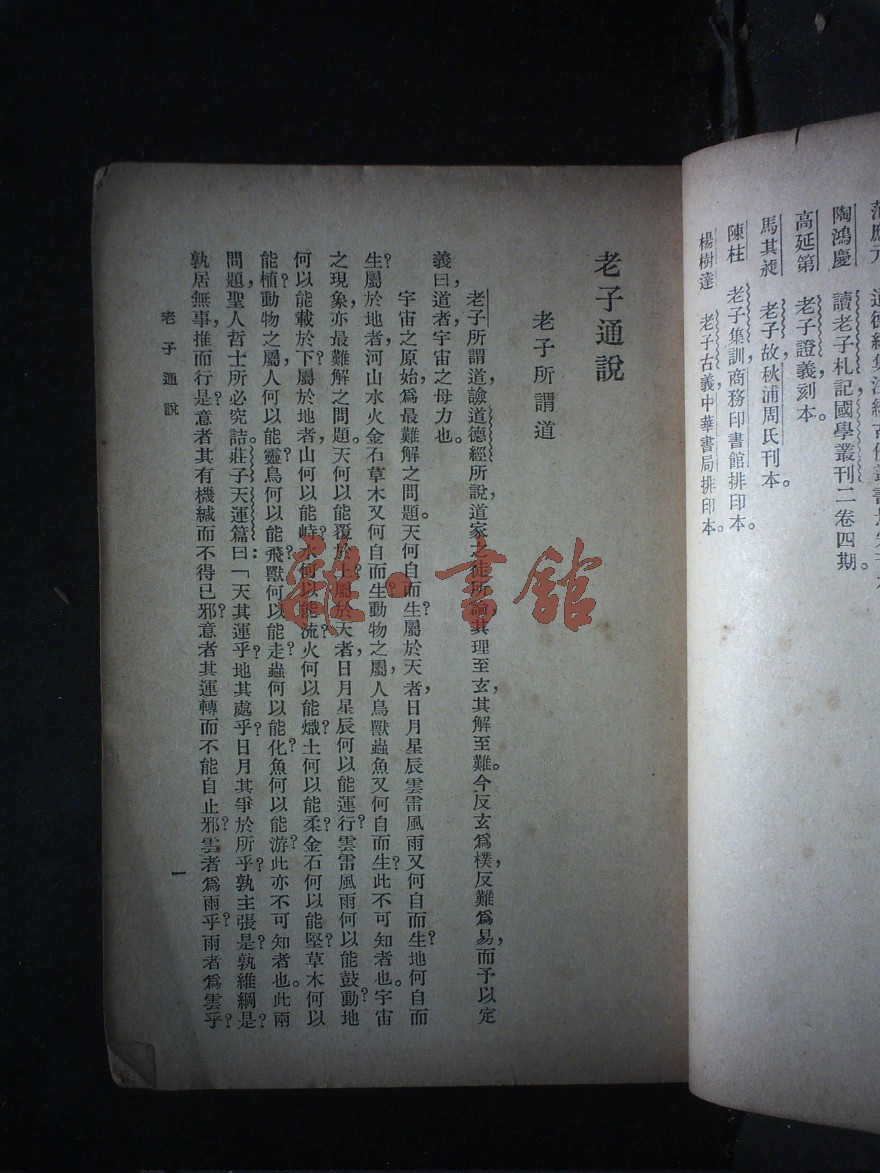 范應元
陶鴻慶 讀老子札記國學叢刊二卷四期。
高延第 老子證義刻本。
馬其昶 老子故秋浦周氏刊本。
陳柱 老子集訓商務印書館排印本。
楊樹達 老子古義中華書局排印本。
老子通說
老子所謂道
老子所謂道，諗道德經所說，道家之徒所論，其理至玄，其解至難。今反玄爲樸，反難爲易，而予以定
義曰：道者，宇宙之母力也。
宇宙之原始，爲最難解之問題。天何自而生？屬於天者，日月星辰雲雷風雨又何自而生？地何自而
生？屬於地者，河山水火金石草木又何自而生？動物之屬，人鳥獸蟲魚又何自而生？此不可知者也。宇宙
之現象，亦最難解之問題。天何以能覆於上？屬於天者，日月星辰何以能運行？雲雷風雨何以能鼓動？地
何以能載於下？屬於地者，山何以能峙？水何以能流？火何以能熾？土何以能柔？金石何以能堅？草木何以
能植？動物之屬，人何以能靈？鳥何以能飛？獸何以能走？蟲何以能化？魚何以能游？此亦不可知者也。此兩
問題，聖人哲士所必究詰。莊子天運篇曰：「天其運乎？地其處乎？日月其爭於所乎？孰主張是？孰維綱是？
孰居無事推而行是？意者其有機緘而不得已邪？意者其運轉而不能自止邪？雲者爲雨乎？雨者爲雲乎？
老子通說
一
雜·書館